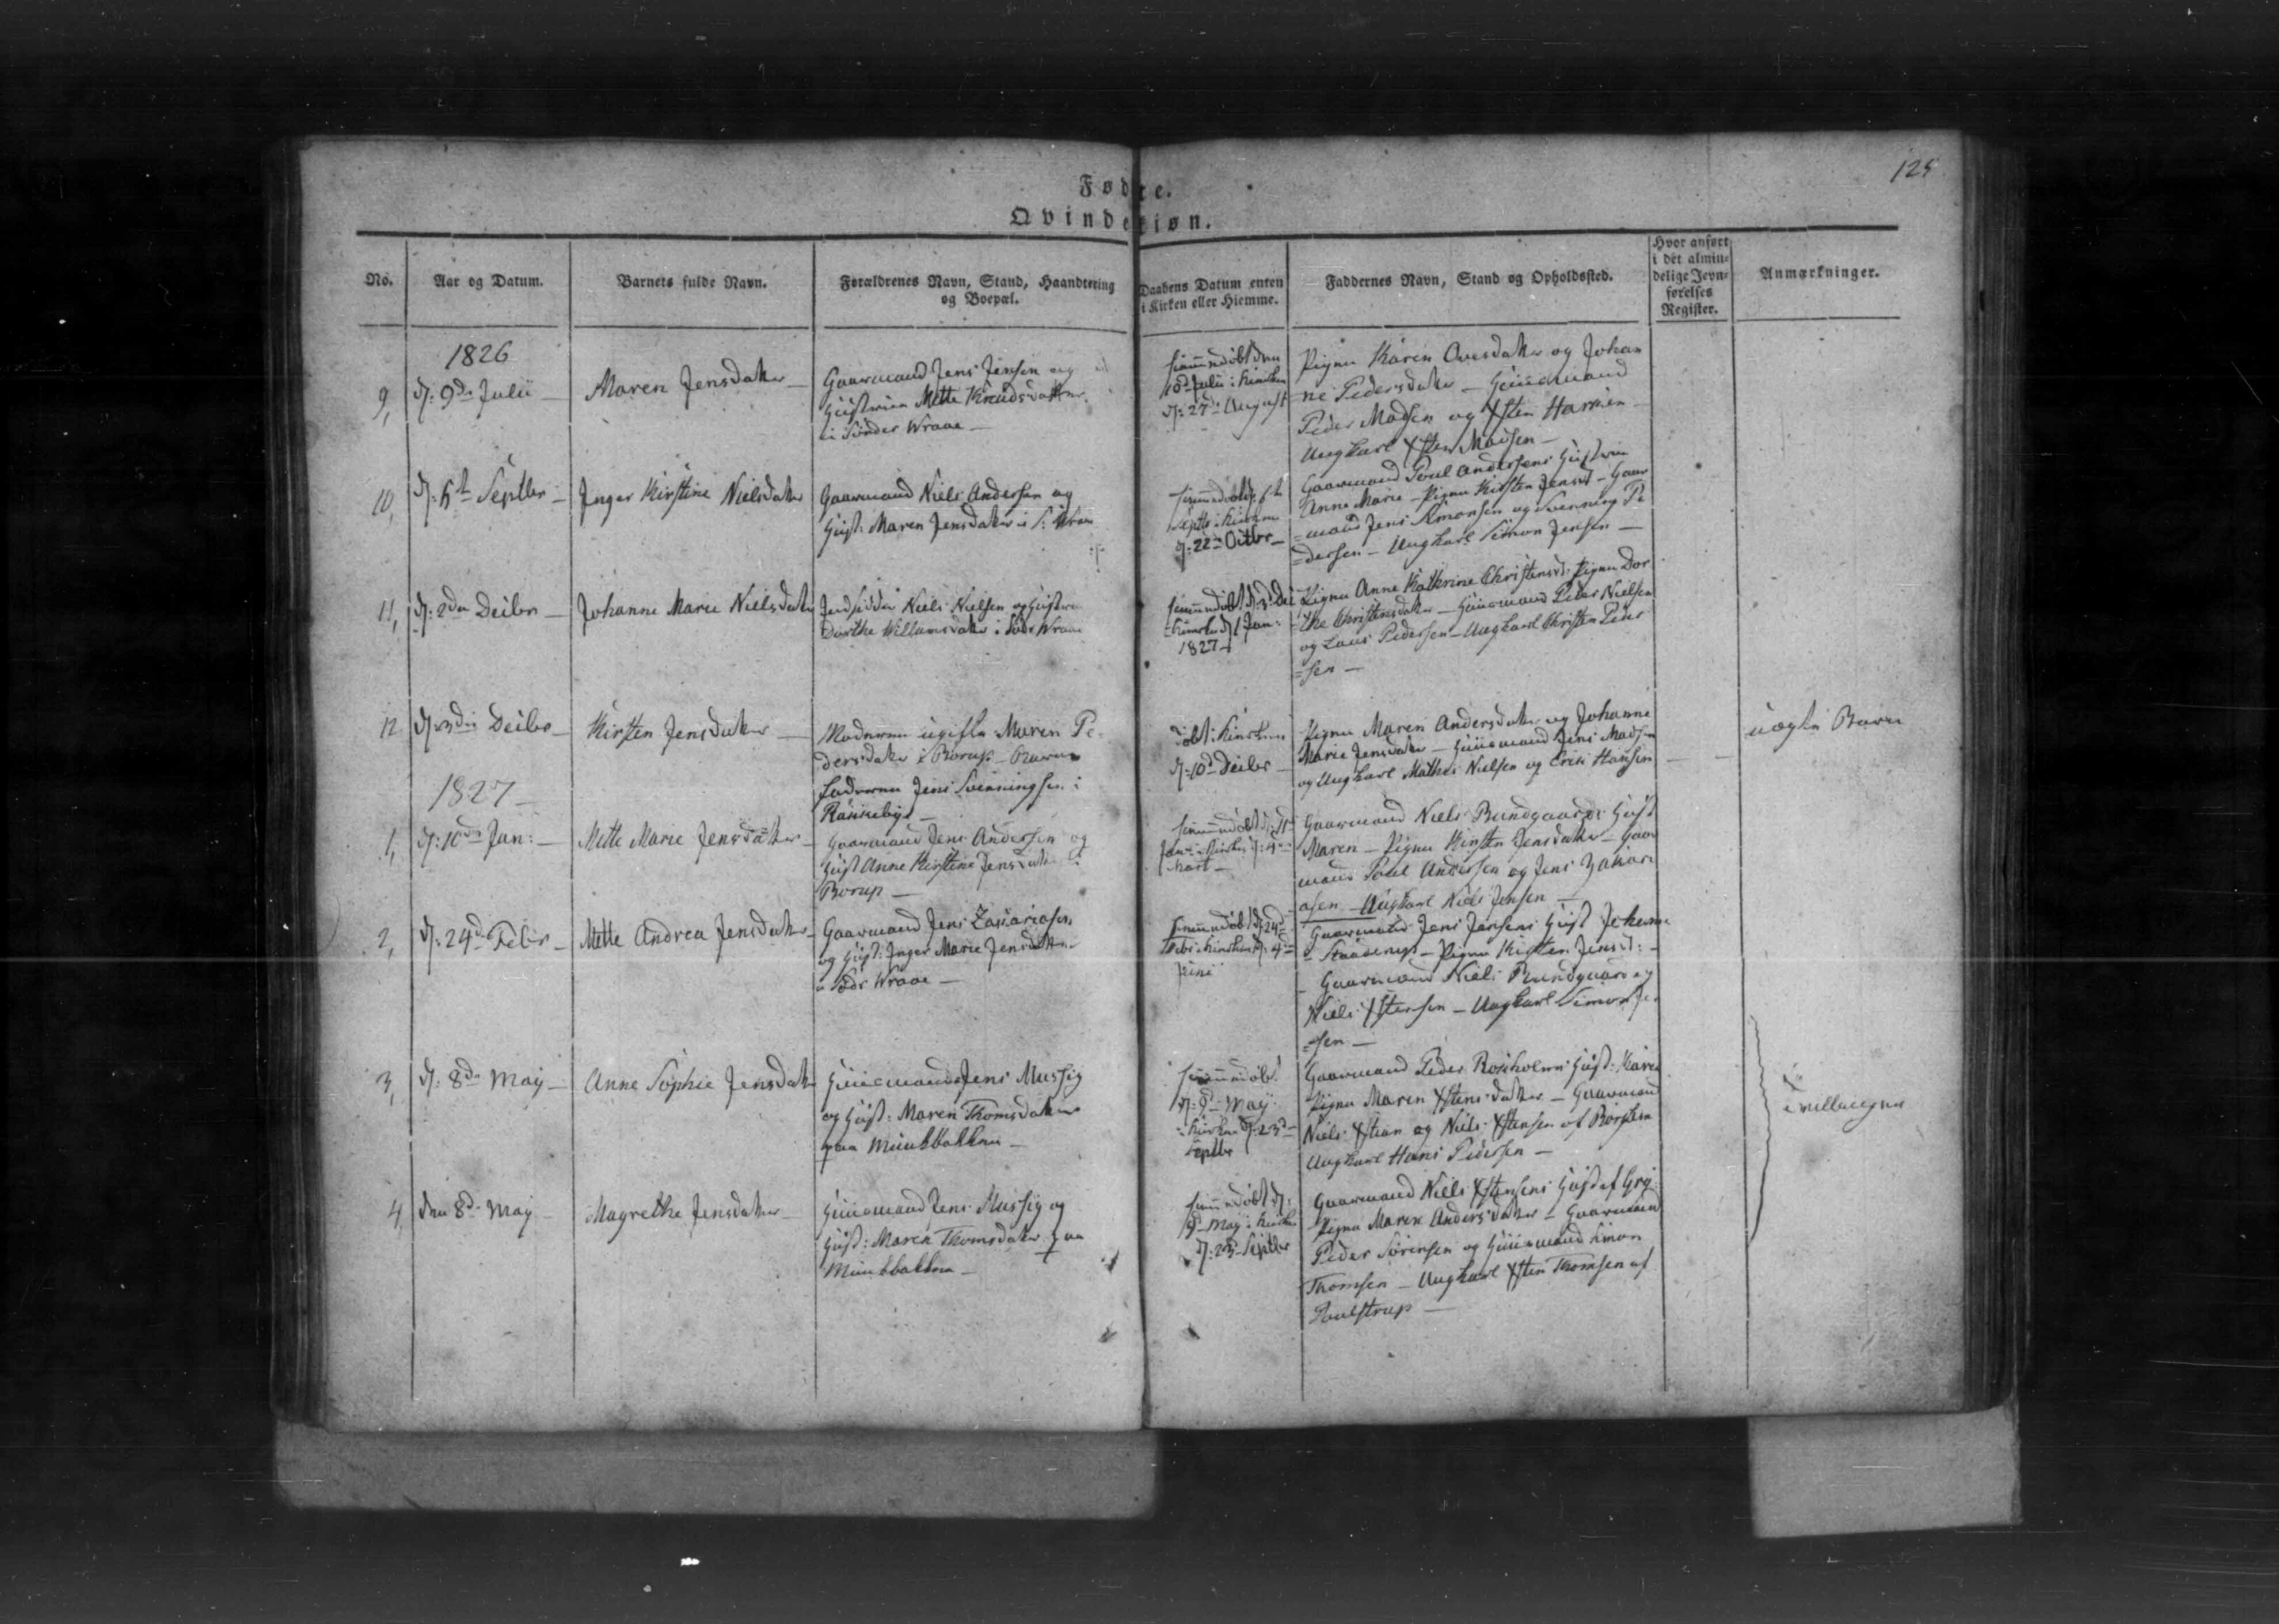 125
Fødte.
Qvindekiøn.
No.
Aar og Datum.
Barnets fulde Navn.
Forældrenes Navn, Stand, Haandtering
og Boepæl.
Daabens Datum enten
i Kirken eller Hiemme.
Faddernes Navn, Stand og Opholdssted.
Hvor anført
i det almin-
delige Jevn-
førelses
Register.
Anmærkninger.
1826
9,
d: 9de Julii —
Maren Jensdatter —
Gaarmand Jens Jensen og
Hustrue Mette Knudsdatter
i Sönder Wraae —
hiemmedöbt den
10d Julii i Kirken
d: 27de August
Pigen Karen Ovesdatter og Johan
ne Pedersdatter — Huusmand
Peder Madsen og Xsten Harrien
Ungkarl Xsten Madsen —
10,
d: 6te Septbr —
Inger Kirstine Nielsdatter
Gaarmand Niels Andersen og
Hust: Maren Jensdatter i S: Wraae
hiemmedöbt 6te
Septbr i Kirken
d: 22de Octbr —
Gaarmand Poul Andersens Hustrue
Anne Marie — Pigen Kirsten Jensd — Gaar
=mand Jens Simonsen og Svenning Pe
=dersen — Ungkarl Simon Jensen —
11,
d: 2den Decbr —
Johanne Marie Nielsdatter
Indsidder Niels Nielsen og Hustrue
Dorthe Willumsdatter i Södr Wraae
hiemmedöbt d: 3 Dec
i Kirken d 1 Jan:
1827 —
Pigen Anne Kathrine Christensd: Pigen Dor
=the Christensdatter — Huusmand Peder Nielsen
og Laus Pedersen — Ungkarl Christen Peder
=sen —
12
d: 3die Decbr —
Kirsten Jensdatter —
Moderen ugifte Maren Pe
dersdatter i Borup — Barne
faderen Jens Svenningsen i
Rönnebye —
döbt i Kirken
d: 10d Decbr —
Pigen Maren Andersdatter og Johanne
Marie Jensdatter — Huusmand Jens Madsen
og Ungkarl Mathis Nielsen og Cris Hansen
uægte Barn
1827 —
1,
d: 10de Jan: —
Mette Marie Jensdatter —
Gaarmand Jens Andersen og
Hust Anne Kirstine Jensdatter i
Borup —
hiemmedöbt d: 11
Jan: i Kirken d: 4de
Mart —
Gaarmand Niels Bundgaards Hust
Maren — Pigen Kirsten Jensdatter — Gaar
mand Poul Andersen og Jens Zakari
asen — Ungkarl Niels Jensen —
2,
d: 24d Febr —
Mette Andrea Jensdatter —
Gaarmand Jens Zachariasen
og Hust: Inger Marie Jensdatter
i Södr Wraae —
hiemmedöbt d: 24d
Febr i Kirken d: 4de
Juni
Gaarmand Jens Jensens Hust Johanne
— Staaderup — Pigen Kirsten Jensd: —
— Gaarmand Niels Bundgaard og
Niels Xstensen — Ungkarl Simon Jen
=sen —
3,
d: 8de May —
Anne Sophie Jensdatter
Huusmand Jens Mussig
og Hust: Maren Thomsdatter
paa Munkbakken —
hiemmedöbt
d: 9de May
i Kirken d: 23d
Septbr
Gaarmand Peder Rosiholms Hust: Karen
Pigen Maren Xstensdatter — Gaarmand
Niels Xstian og Niels Xstensen af Borsholm
Ungkarl Hans Pedersen —
Tvillinger
4,
den 8de May —
Magrethe Jensdatter —
Huusmand Jens Mussig og
Hust: Maren Thomsdatter paa
Munkbakken —
hiemmedöbt d:
9d May i Kirken
d: 23d Septbr
Gaarmand Niels Xstensens Hust af
Pigen Maren Andersdatter — Gaarmand
Peder Sörensen og Huusmand Simon
Thomsen — Ungkarl Xsten Thomsen af
Poulstrup —